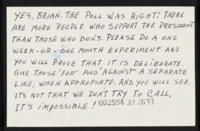 YES, BRIAN. THE POLL WAS RIGHT! THERE
ARE MORE PEOPLE WHO SUPPORT THE PRESIDENT
THAN THOSE WHO DON'T. PLEASE DO A ONE
WEEK-OR-ONE MONTH EXPERIMENT AND
YOU WILL PROVE THAT IT IS DELIBERATE
GIVE THOSE "FOR" AND "AGAINST" A SEPARATE
LINE, WHEN APPROPRIATE. AND YOU WILL SEE.
IT'S NOT THAT WE DON'T TRY TO CALL,
IT'S IMPOSSIBLE! 002594 JUL 26 93